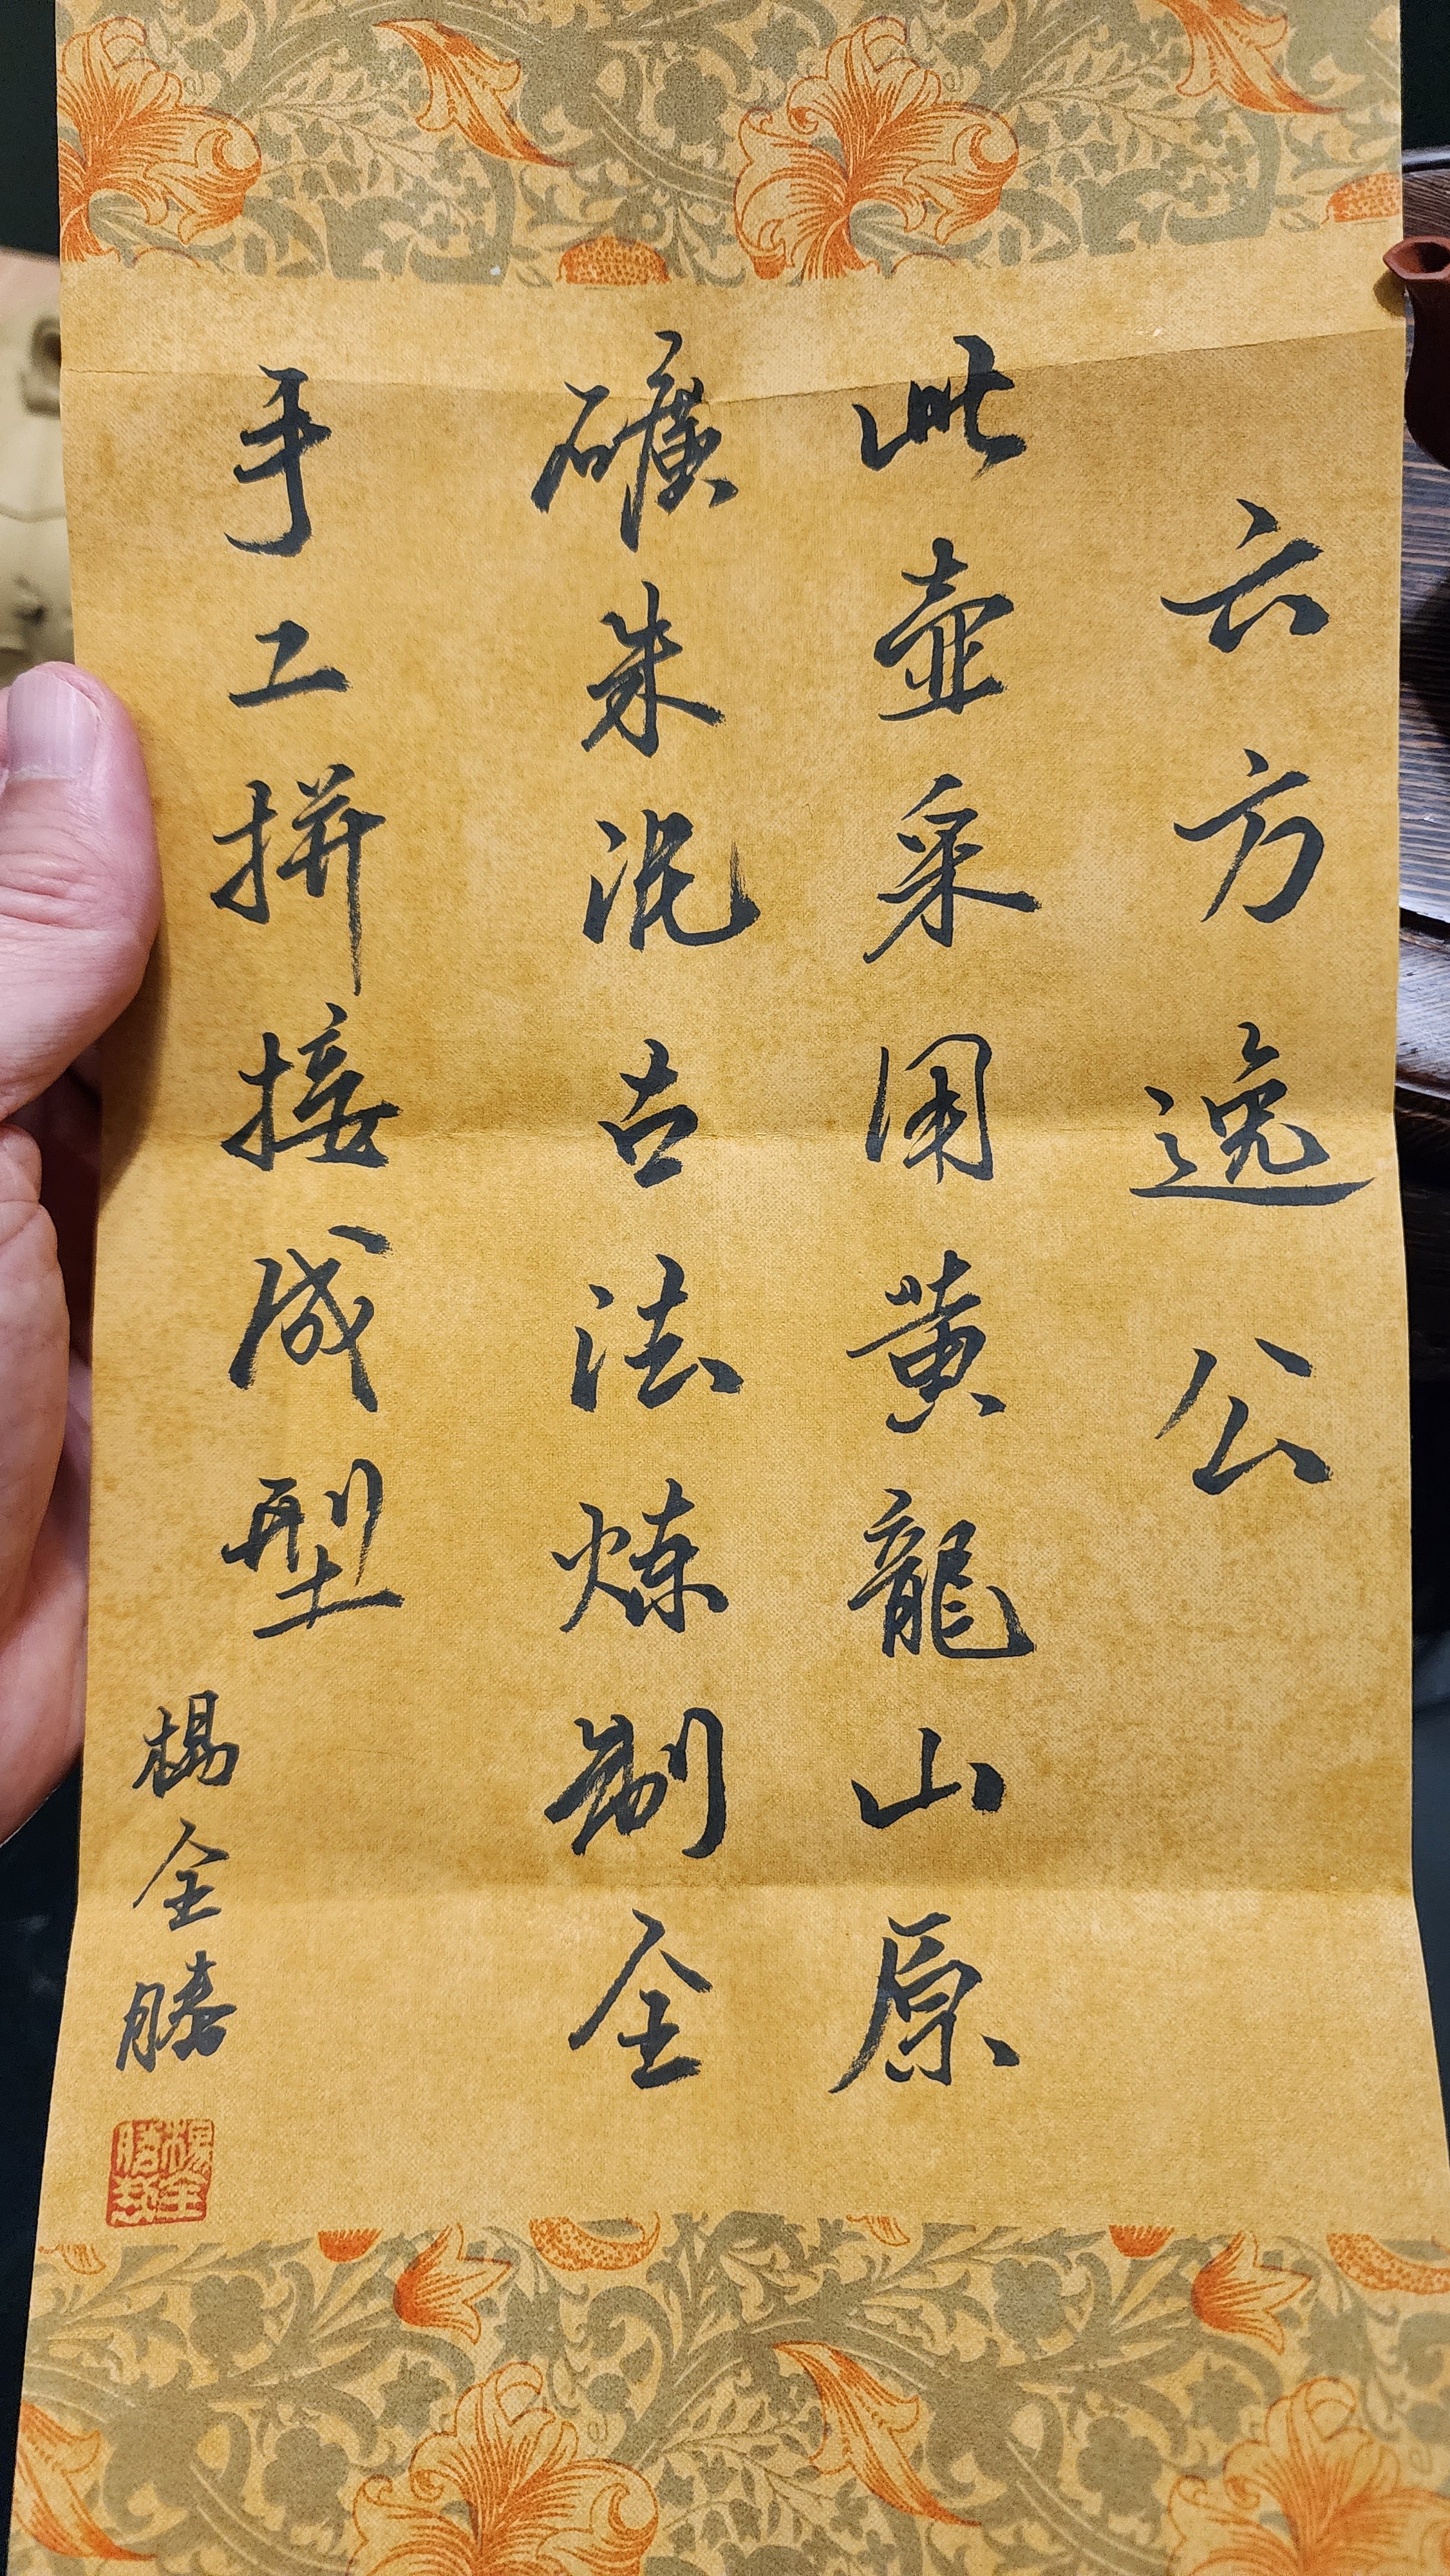 六方逸公
此壶采用黄龍山原
礦朱泥古法炼制全
手工拼接成型
楊全勝
楊全勝印